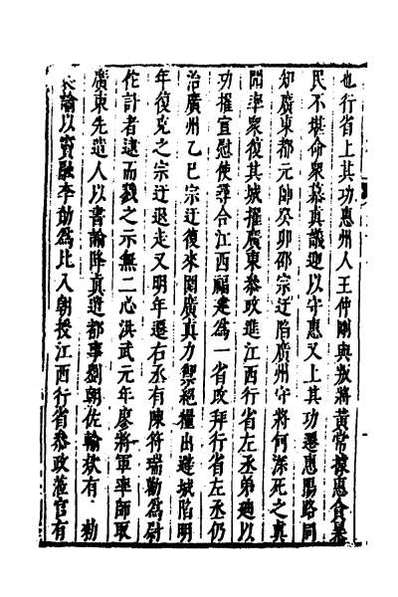 也行省上其功惠州人王仲剛與叛將黃常據惠食暴
民不堪命眾慕真議迎以守惠又上其功遷惠陽路同
知廣東都元帥癸卯邵宗迂陷廣州守將何深死之真
聞率眾復其城擢廣東恭政進江西行省左丞弟廸以
功擢宣慰使尋合江西福建為一省改拜行省左丞仍
治廣州乙巳宗迂復來圍廣真力禦絕糧出避城陷明
年復克之宗迂退走又明年遷右丞有陳符瑞勸為尉
佗計者逮而戮之示無二心洪武元年廖將軍率師取
廣東先遣人以書諭降真遣都事劉朝佐輸欵有 勑
諭以竇融李勣為比入朝授江西行省恭政蒞官有